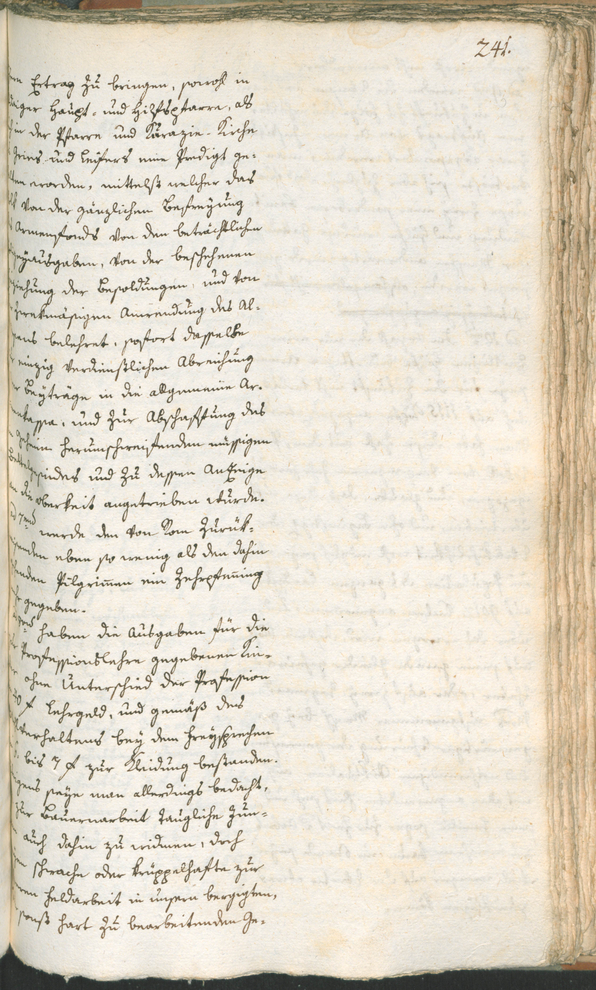 241.
Ertrag zu bringen, sowohl in
Haupt- und Hilfspfarre, als
in der Pfarre und Kurazie-Kirche
Gries und Leifers eine Predigt ge-
worden, mittelst welcher das
von der gänzlichen Befreyung
Armenfonds von den beträchtlichen
ausgaben, von der beschehenen
der Besoldungen, und von
zwekmäsigen Anwendung des Al-
belehret, sofort dasselbe
einzig verdienstlichen Abreichung
Beyträge in die allgemeine Ar-
kassa, und zur Abschaffung des
herumschweifenden müssigen
Bettelgesindes und zu dessen Anzeige
die Oberkeit angetrieben wurde.
werde den von Rom zurük-
eben so wenig als den dahin
Pilgrimen ein Zehrpfenning
gegeben.
haben die Ausgaben für die
Professionslehre gegebenen Kin-
ohne Unterschied der Profession
Lehrgeld, und gemäß des
verhaltens bey dem Freysprechen
bis 7 f zur Kleidung bestanden.
seye man allerdings bedacht,
zur Bauernarbeit taugliche Jun-
auch dahin zu widmen, doch
schwache oder krüppelhafte zur
Feldarbeit in unsern bergigten,
sonst hart zu bearbeitenden Ge-